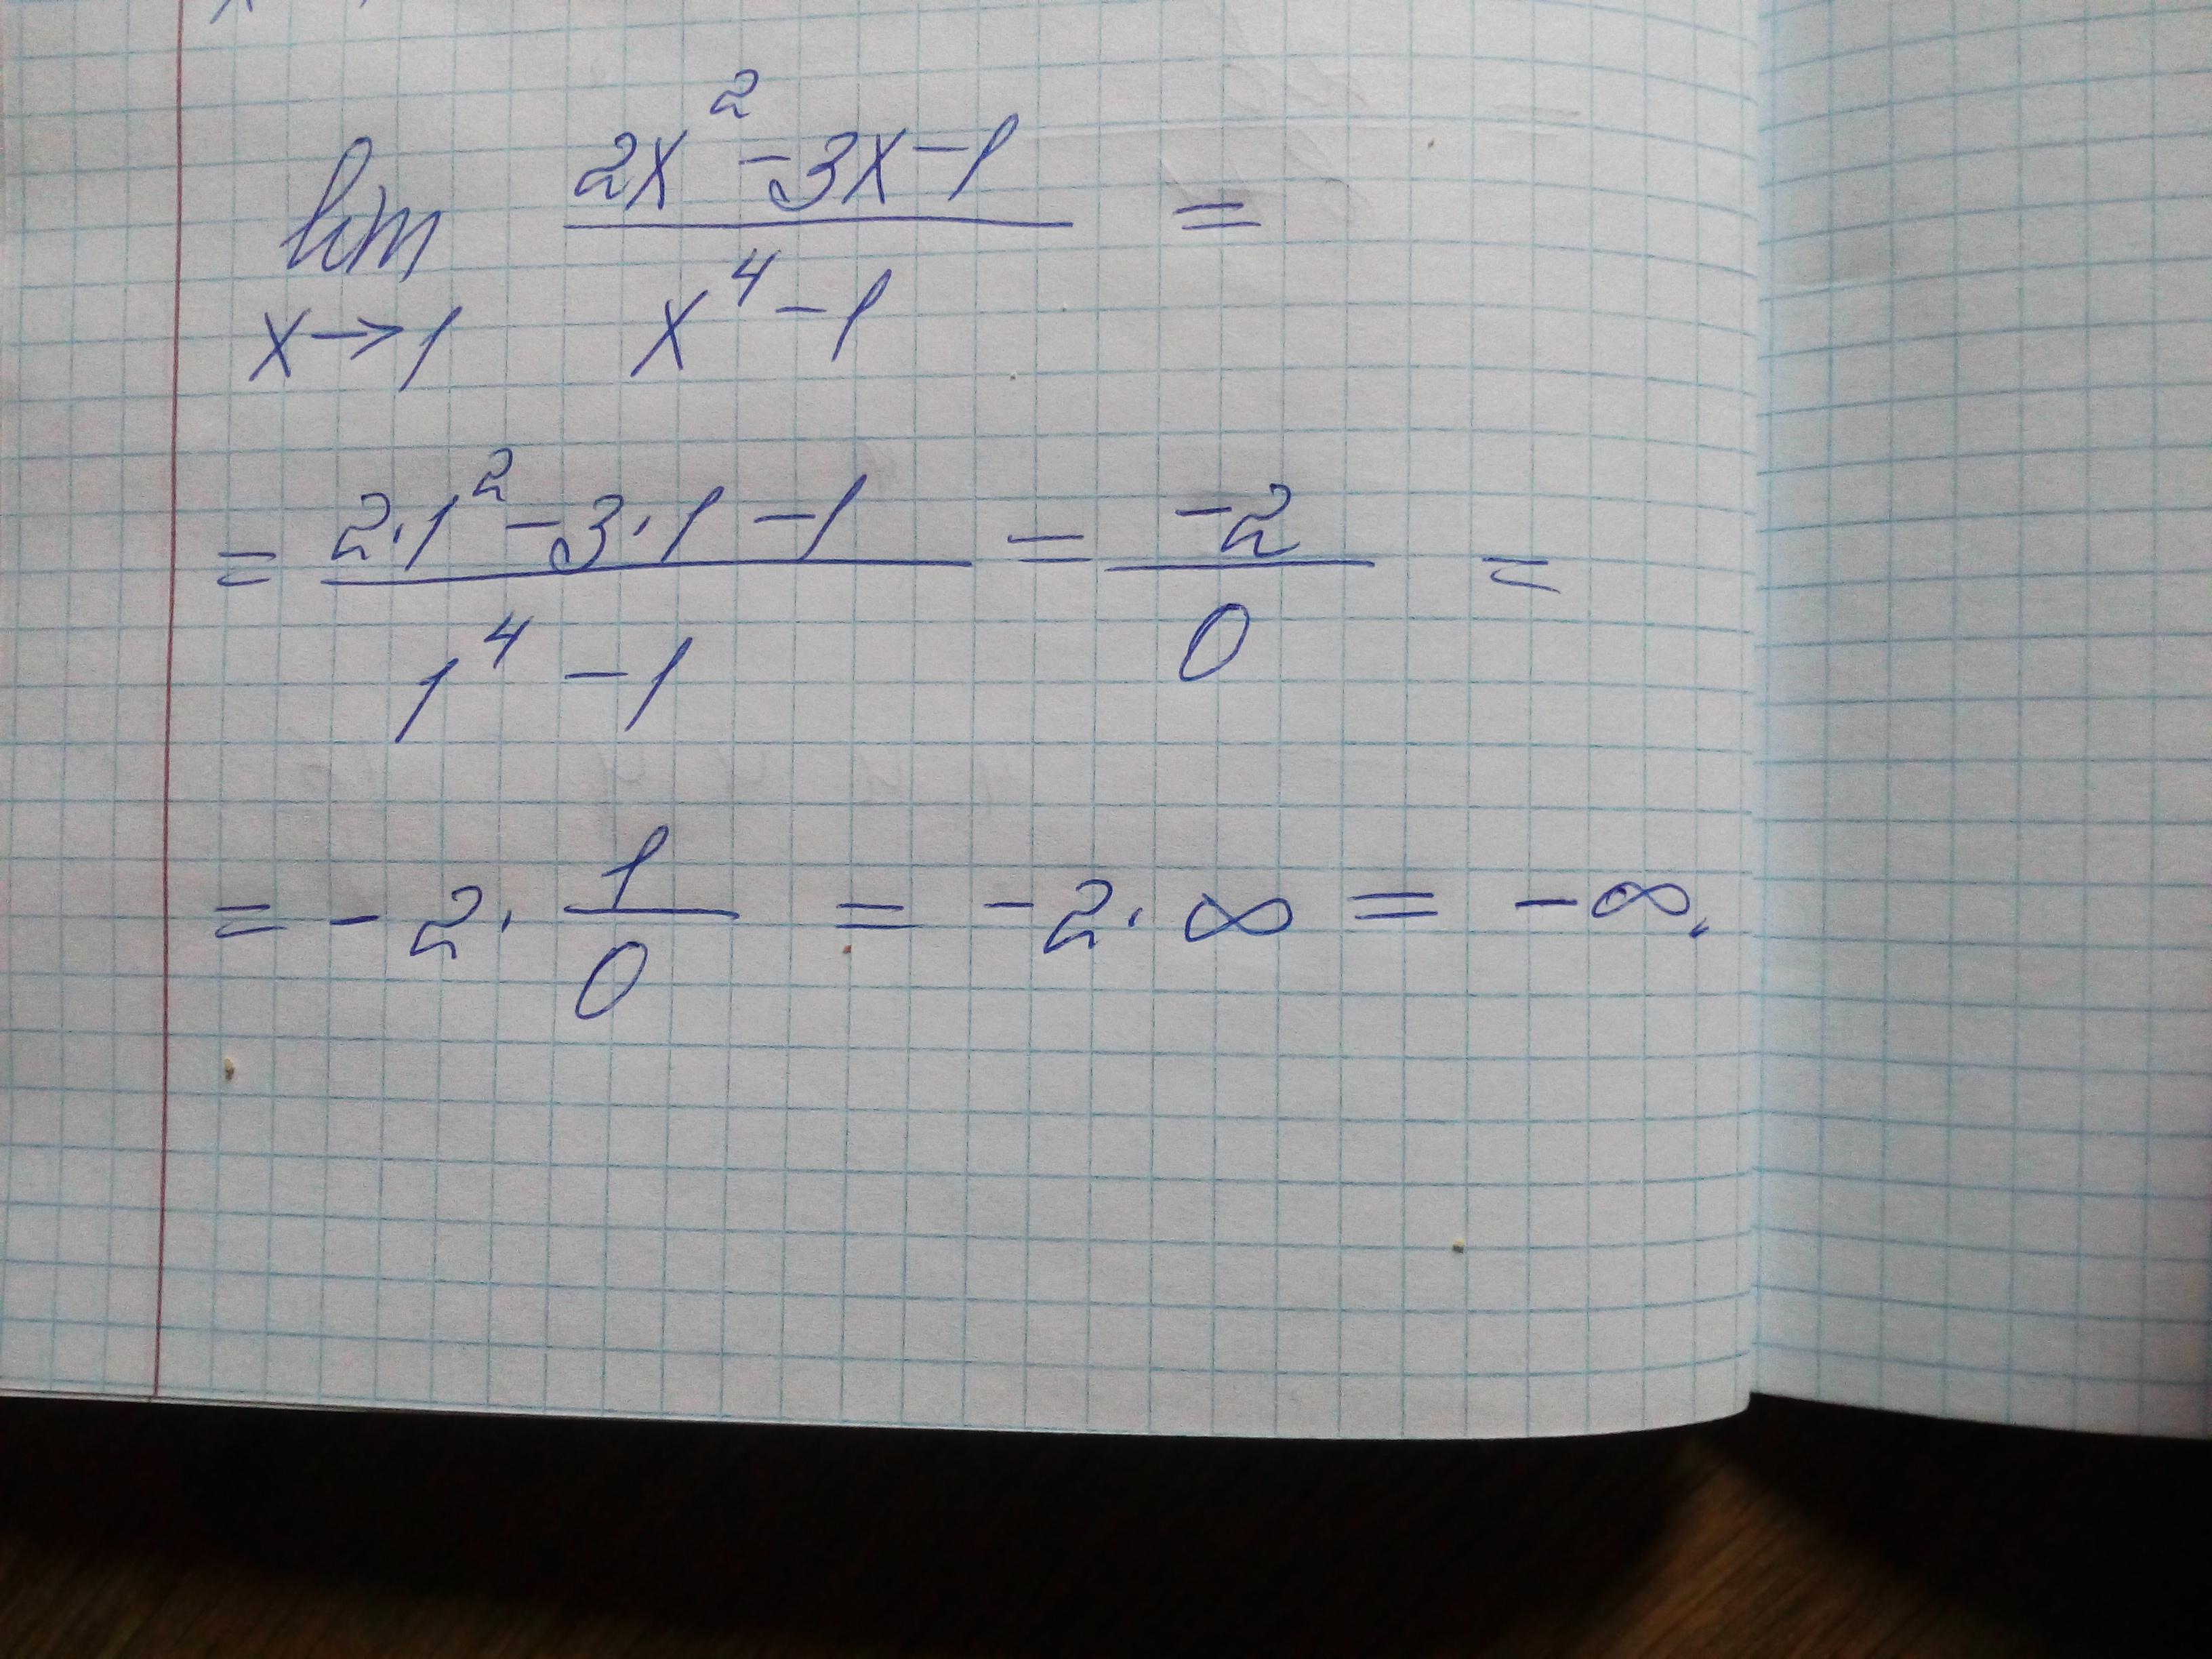 lim 2x² - 3x - 1 / x⁴ - 1 =
x → 1
= 2·1² - 3·1 - 1 / 1⁴ - 1 = -2 / 0 =
= -2 · 1 / 0 = -2 · ∞ = -∞.